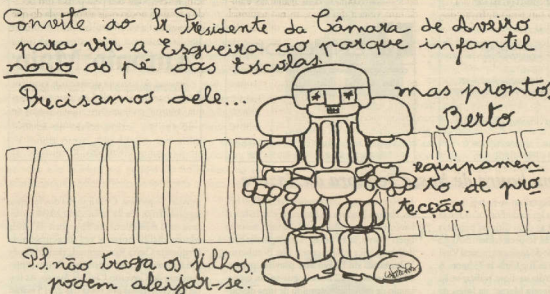 Convite ao Sr Presidente da Câmara de Aveiro
para vir a Esgueira ao parque infantil
novo ao pé das Escolas.
Precisamos dele...
mas pronto
Berto
equipamen-
to de pro-
tecção.
P.S. não traga os filhos
podem aleijar-se.